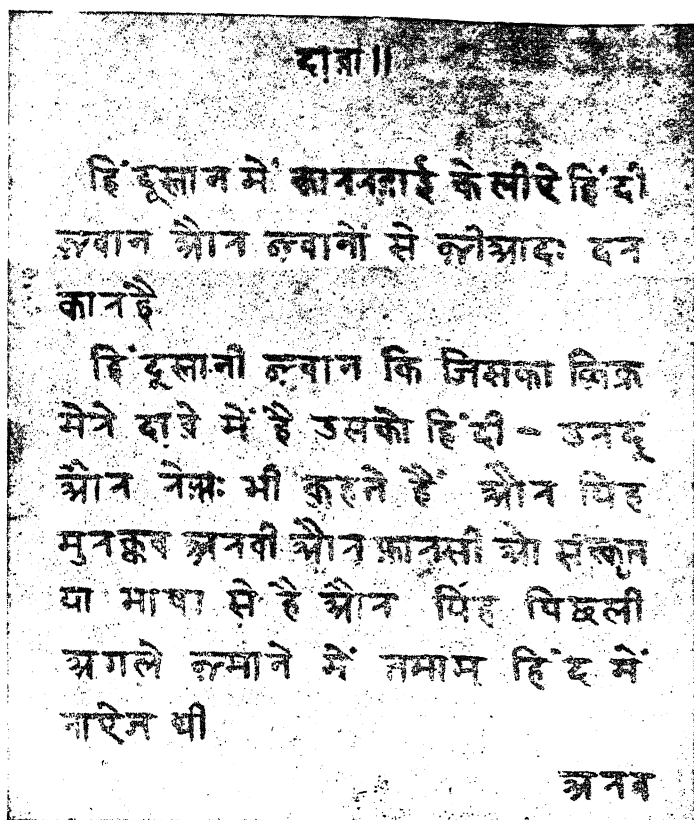 दावा॥
हिंदूस्तान में काररवाई के लीऐ हिंदी
ज़बान और ज़बानों से ज़ीआदः दर
कार है
हिंदूस्तानी ज़बान कि जिसका ज़िक्र
मेरे दावे में है उसको हिंदी - उरदू
और रेख़तः भी कहते हैं और यिह
मुरक्कब अरबी और फ़ारसी ओ संस्कृत
या भाषा से है और यिह पिछली
अगले ज़माने में तमाम हिंद में
राऐज थी
अरब